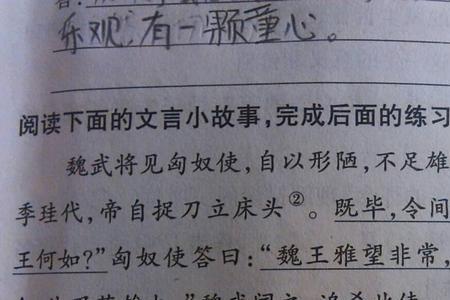 乐观,有一颗童心。
阅读下面的文言小故事,完成后面的练习
魏武将见匈奴使,自以形陋,不足雄
季珪代,帝自捉刀立床头②。既毕,令间
王何如?”匈奴使答曰:“魏王雅望非常,